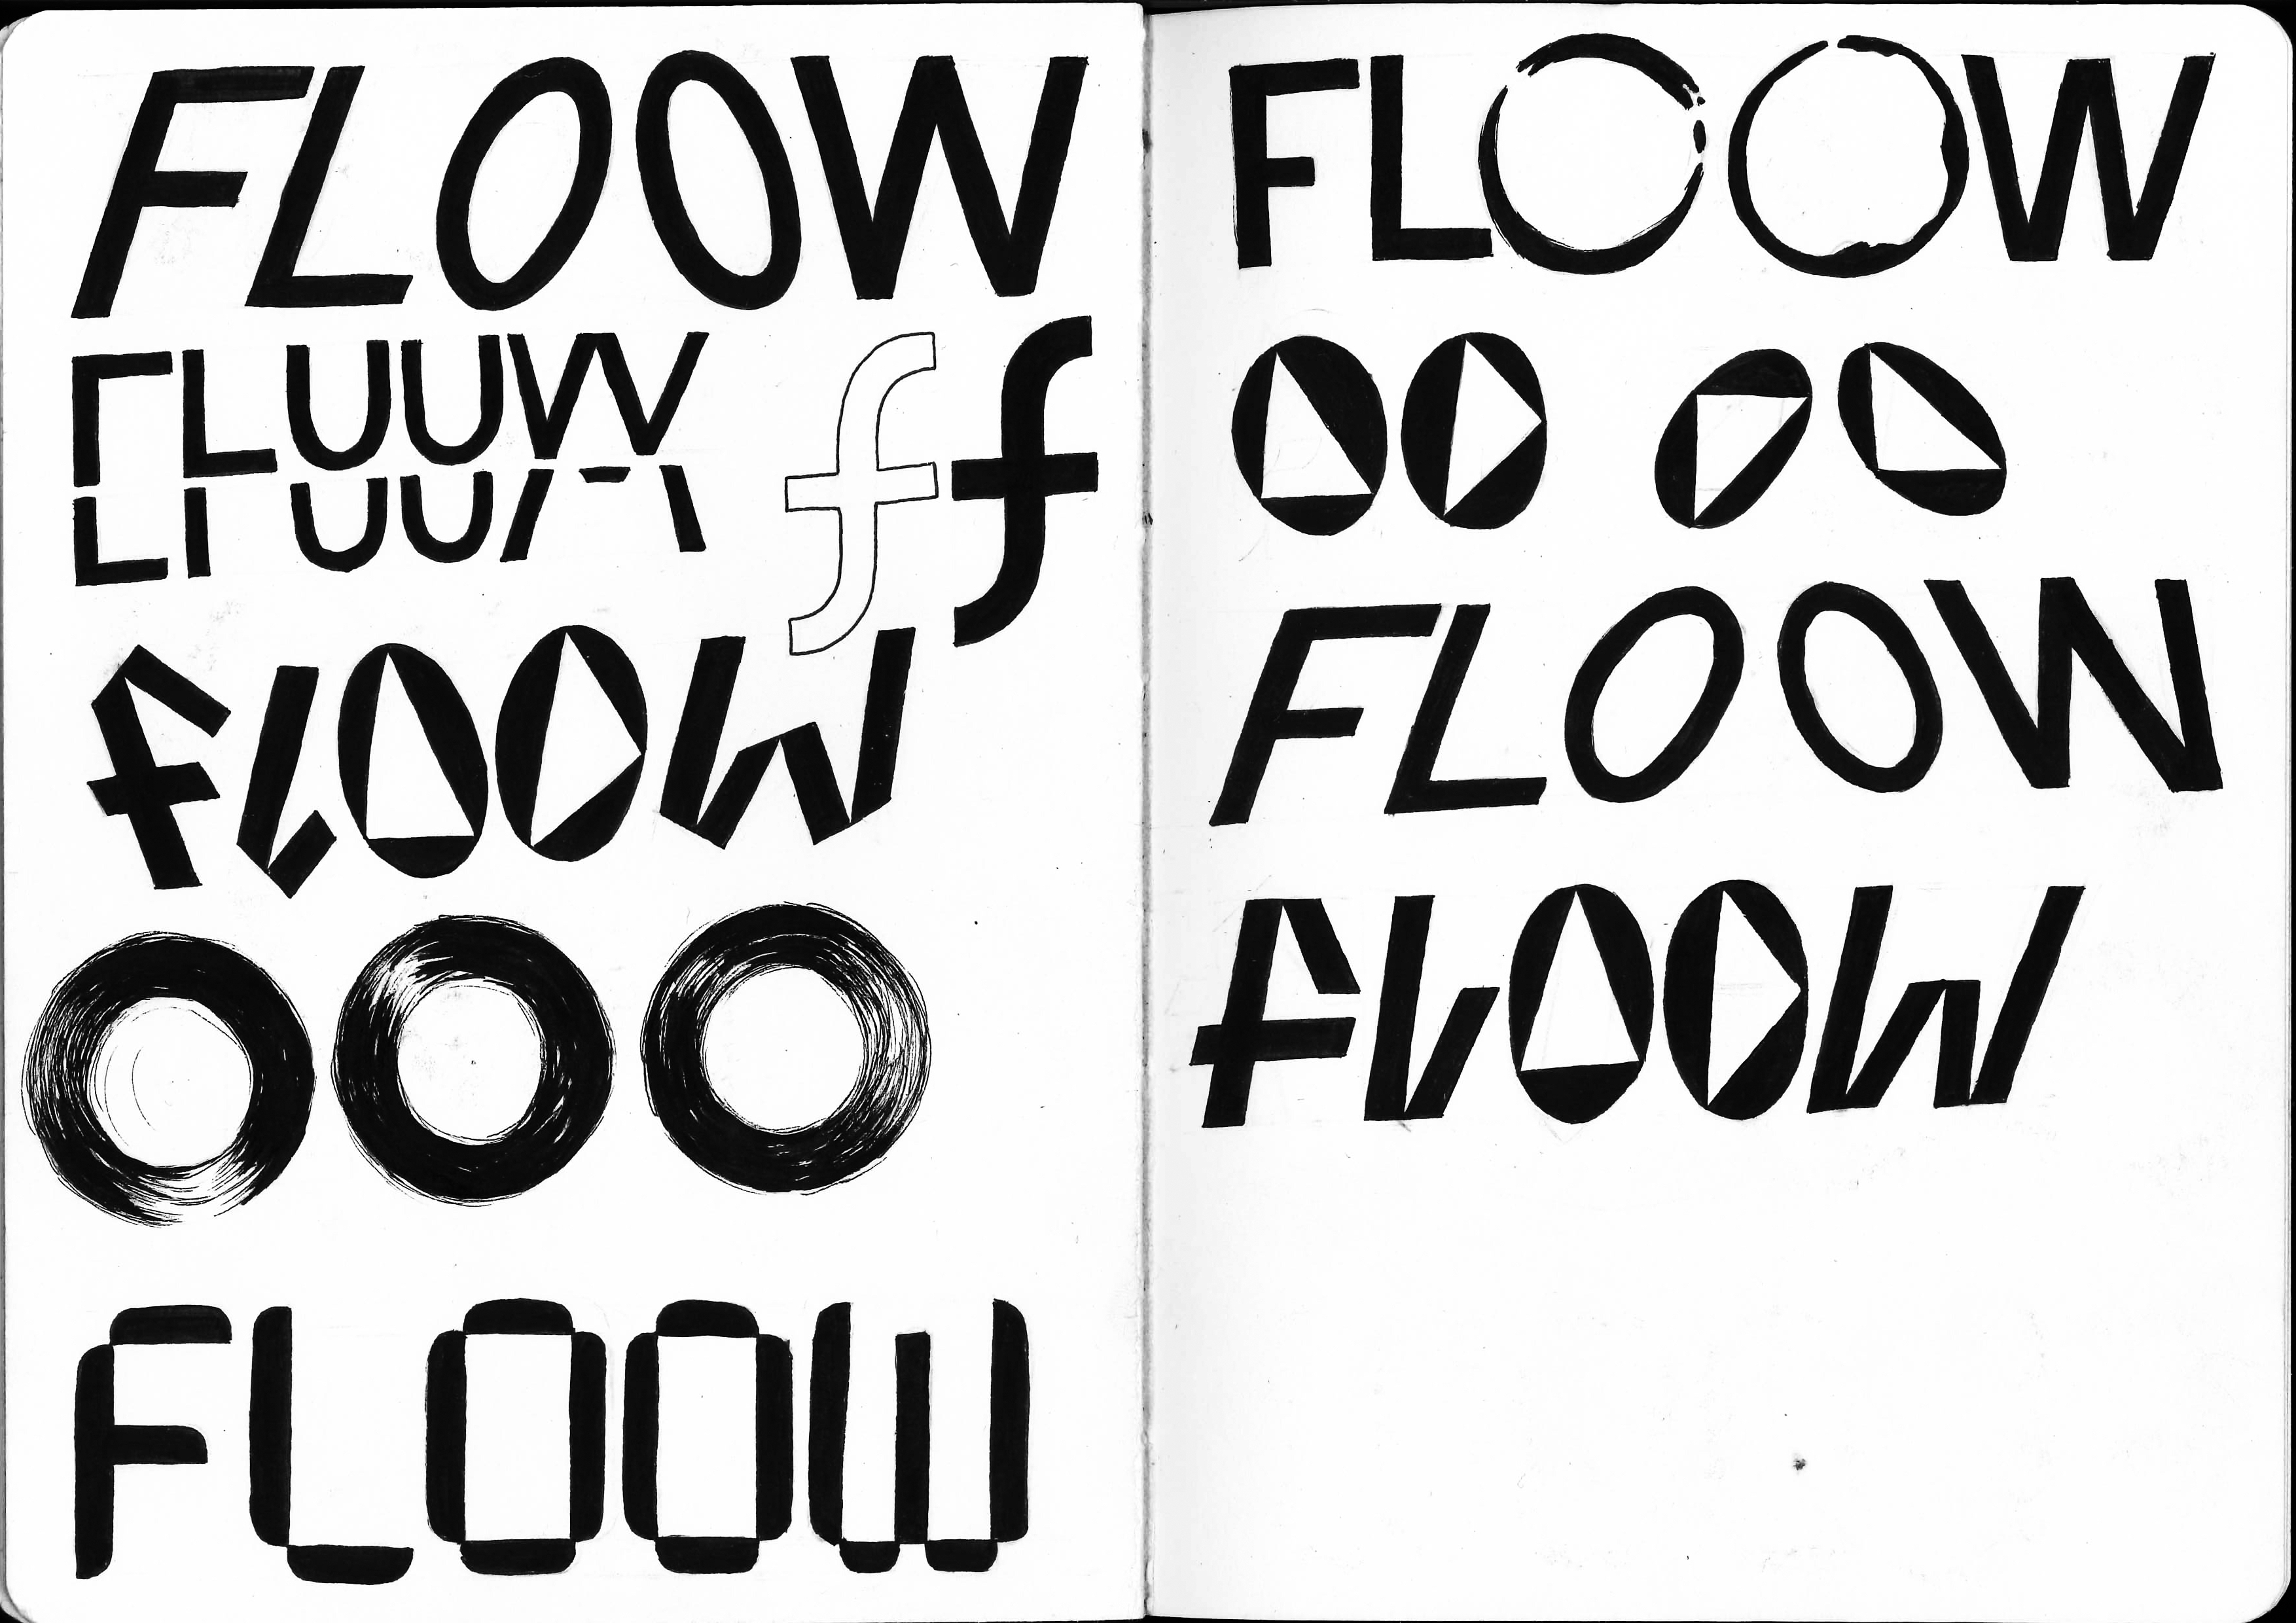 FLOOW
FLUUW
ff
fLOOW
OOO
FLOOW
FLOOW
OO OO
FLOOW
fLOOW